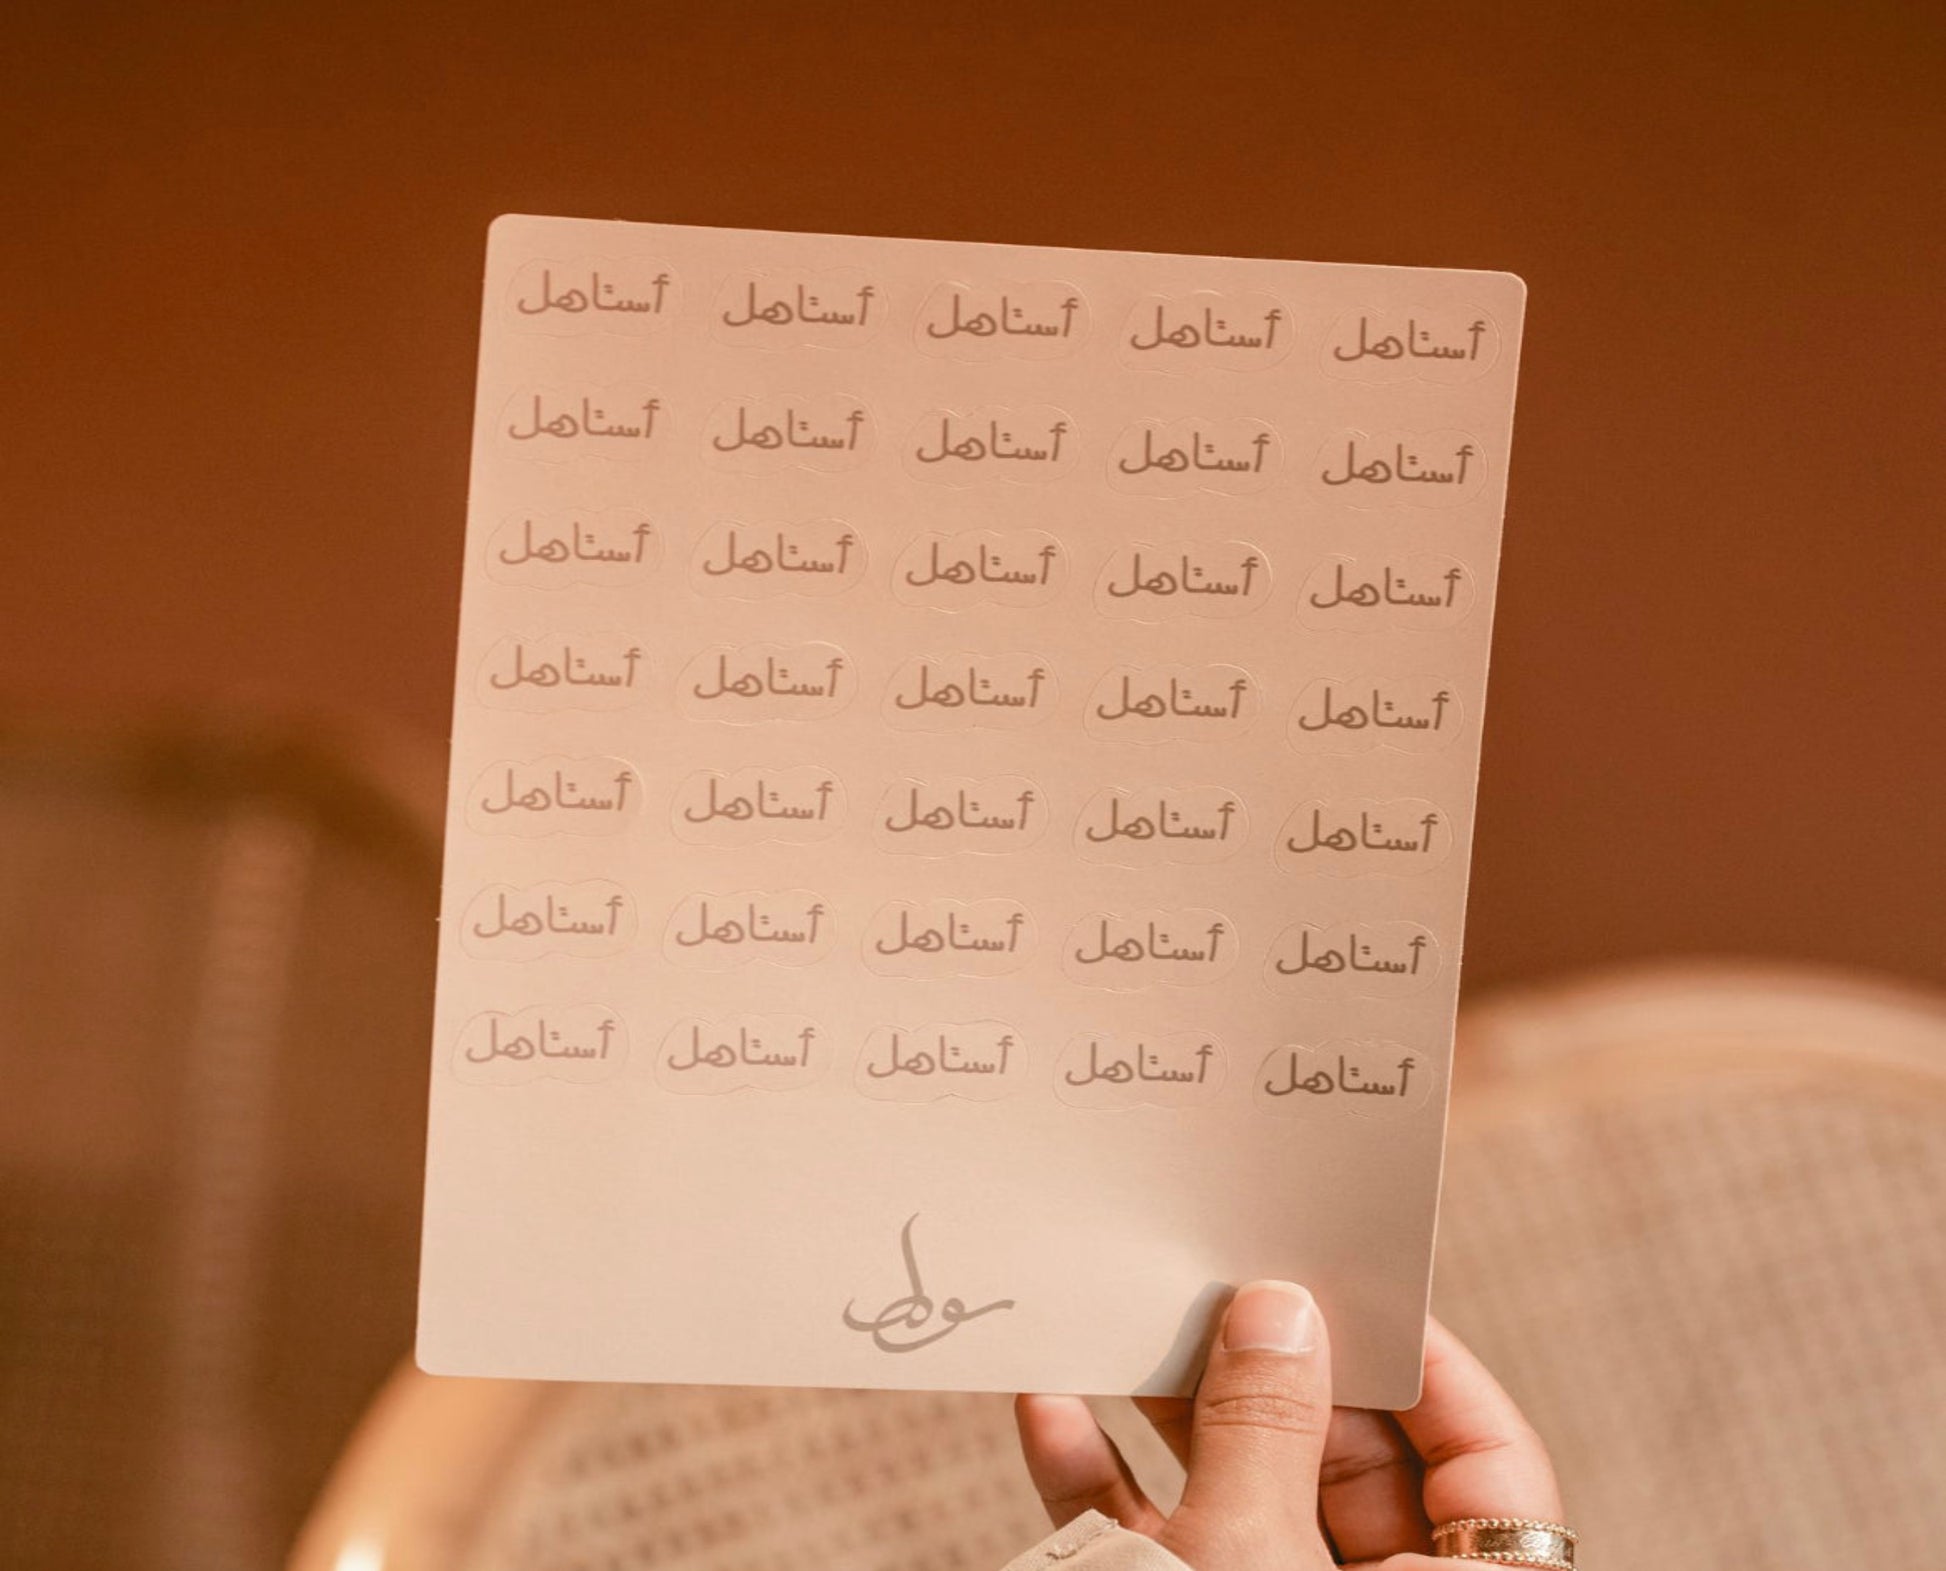 أستاهل أستاهل أستاهل أستاهل أستاهل
أستاهل أستاهل أستاهل أستاهل أستاهل
أستاهل أستاهل أستاهل أستاهل أستاهل
أستاهل أستاهل أستاهل أستاهل أستاهل
أستاهل أستاهل أستاهل أستاهل أستاهل
أستاهل أستاهل أستاهل أستاهل أستاهل
أستاهل أستاهل أستاهل أستاهل أستاهل